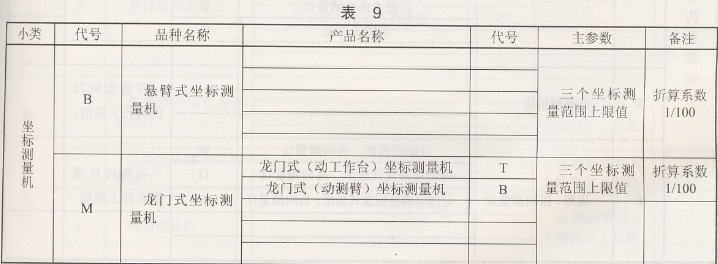 表 9
小类 代号 品种名称 产品名称 代号 主参数 备注
坐标测量机
B 悬臂式坐标测
量机
三个坐标测
量范围上限值
折算系数
1/100
M 龙门式坐标测
量机
龙门式（动工作台）坐标测量机 T
龙门式（动测臂）坐标测量机 B
三个坐标测
量范围上限值
折算系数
1/100